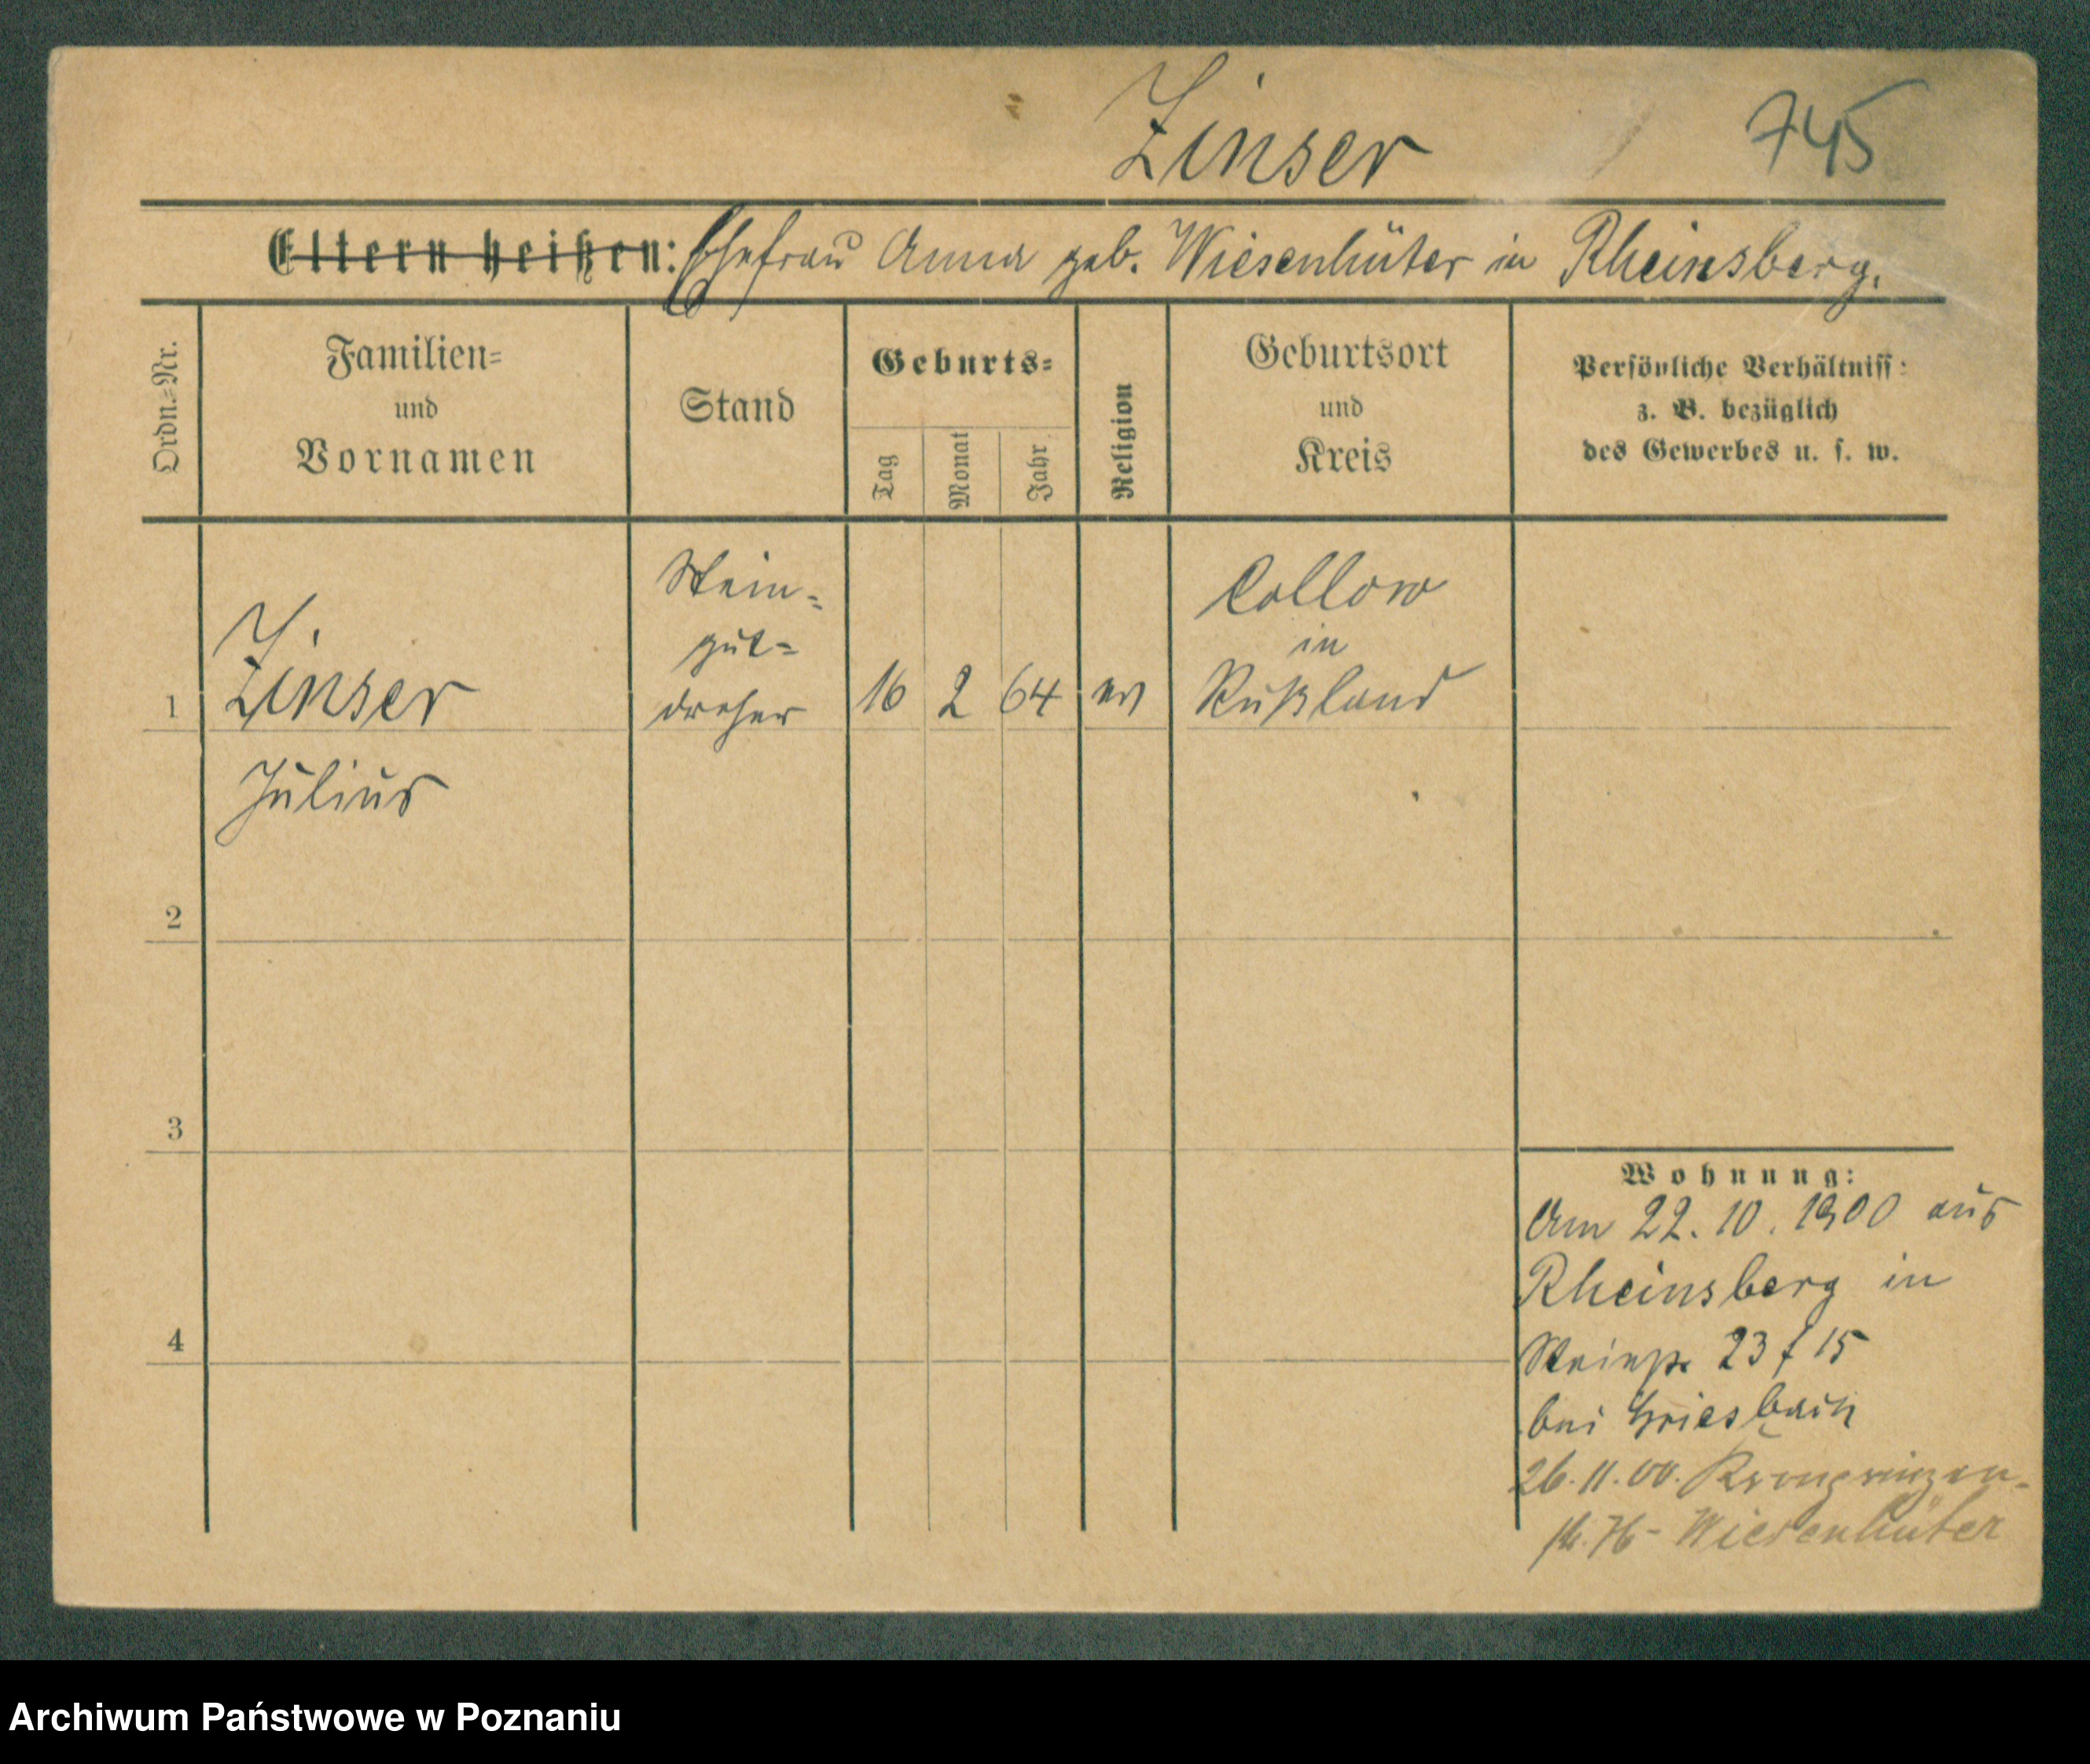 Zinser 745
Eltern heißen: Ehefrau Anna geb. Wiesenhüter in Rheinsberg.
Ordn.=Nr.
Familien=
und
Vornamen
Stand
Geburts=
Tag
Monat
Jahr
Religion
Geburtsort
und
Kreis
Persönliche Verhältniss:
z. B. bezüglich
des Gewerbes u. s. w.
1
Zinser
Julius
Stein=
gut=
dreher
16 2 64 ev
Collow
in
Rußland
2
3
4
Wohnung:
Am 22. 10. 1900 aus
Rheinsberg in
23 f 15
bei Griesbach
26. 11. 00. Kronprinzen-
str. 76 - Wiesenhüter
Archiwum Państwowe w Poznaniu